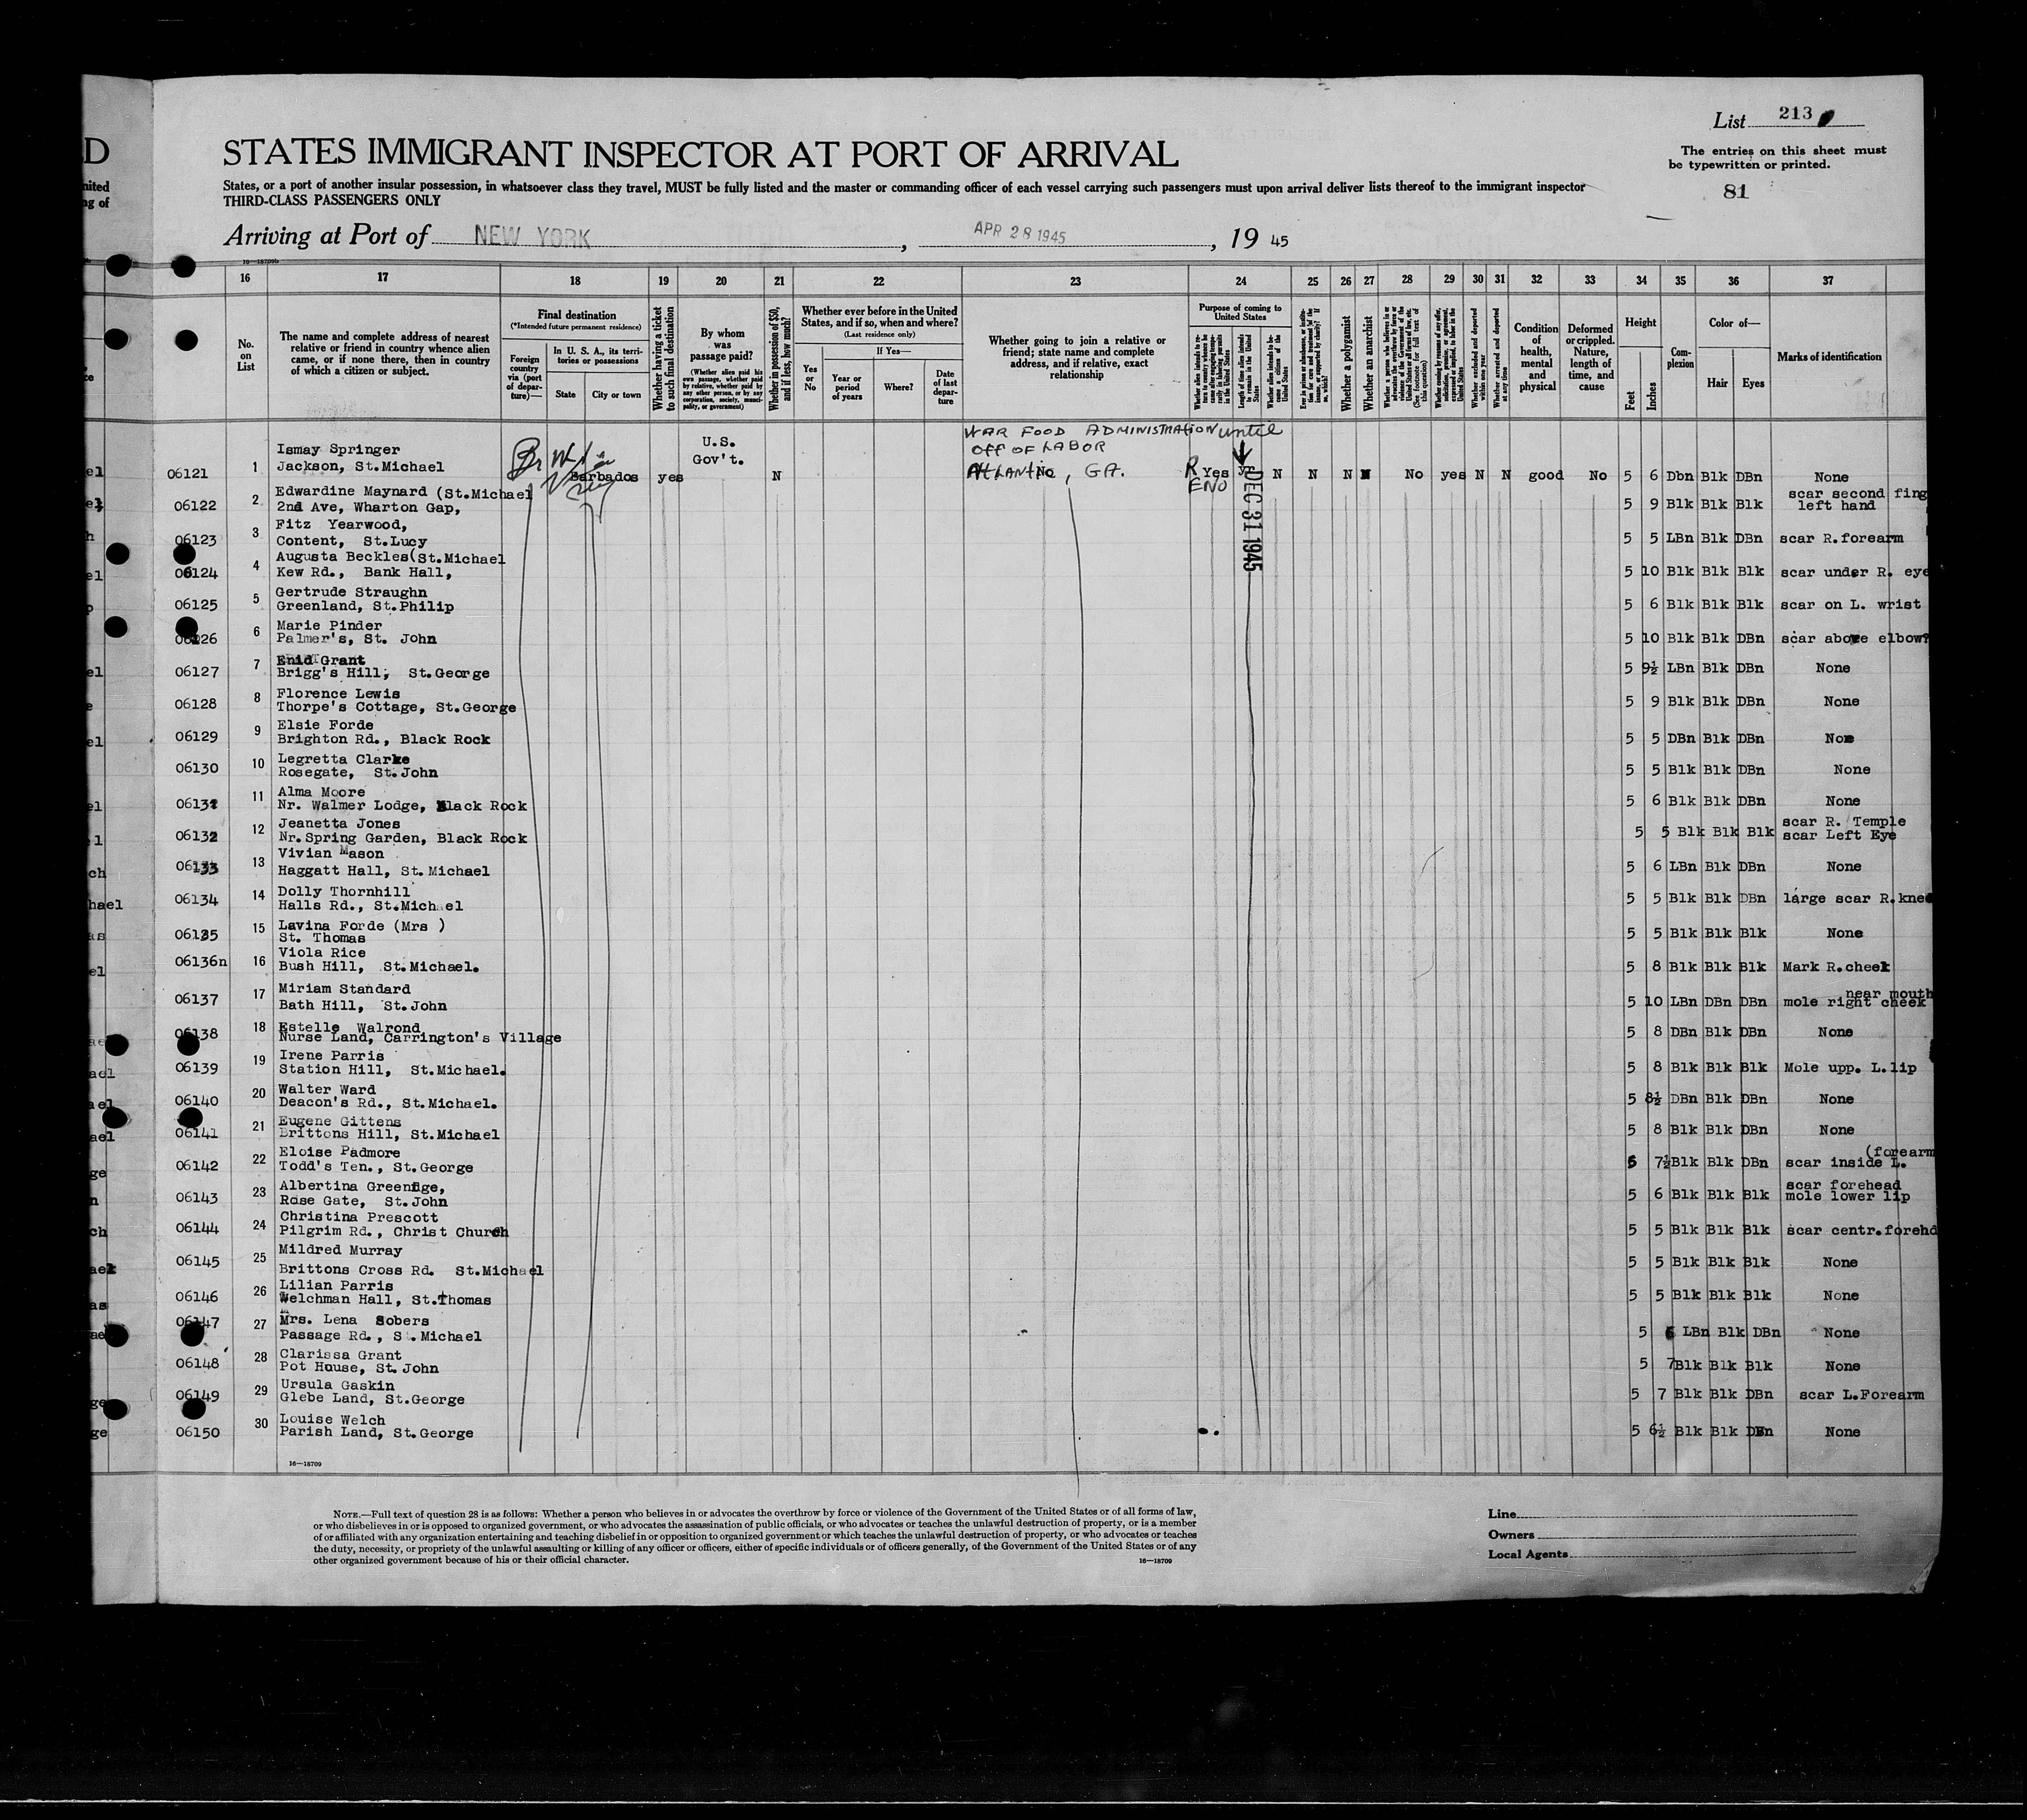 List 213
The entries on this sheet must
be typewritten or printed.
81
D
STATES IMMIGRANT INSPECTOR AT PORT OF ARRIVAL
nited
ng of
States, or a port of another insular possession, in whatsoever class they travel, MUST be fully listed and the master or commanding officer of each vessel carrying such passengers must upon arrival deliver lists thereof to the immigrant inspector
THIRD-CLASS PASSENGERS ONLY
Arriving at Port of NEW YORK, APR 28 1945, 19 45
16—18709b
16 17 18 19 20 21 22 23 24 25 26 27 28 29 30 31 32 33 34 35 36 37
No. on List
The name and complete address of nearest relative or friend in country whence alien came, or if none there, then in country of which a citizen or subject.
Final destination
(*Intended future permanent residence)
Foreign country via (port of departure)—
In U. S. A., its territories or possessions
State
City or town
Whether having a ticket to such final destination
By whom was passage paid?
(Whether alien paid his own passage, whether paid by relative, whether paid by any other person, or by any corporation, society, municipality, or government)
Whether in possession of $50, and if less, how much?
Whether ever before in the United States, and if so, when and where?
(Last residence only)
Yes or No
If Yes—
Year or period of years
Where?
Date of last departure
Whether going to join a relative or friend; state name and complete address, and if relative, exact relationship
Purpose of coming to United States
Length of time alien intends to remain in the United States
Whether alien intends to become a citizen of the United States
Whether a polygamist
Whether an anarchist
Whether excluded and deported within one year
Whether arrested and deported at any time
Condition of health, mental and physical
Deformed or crippled. Nature, length of time, and cause
Height
Feet
Inches
Complexion
Color of—
Hair
Eyes
Marks of identification
WAR FOOD ADMINISTRATION until
OFF OF LABOR
ATLANTA, GA.
DEC 31 1945
06121 1 Ismay Springer
Jackson, St.Michael Barbados yes U.S. Gov't. N No R Yes N N N N No yes N N good No 5 6 Dbn Blk DBn None
06122 2 Edwardine Maynard (St.Michael
2nd Ave, Wharton Gap, 5 9 Blk Blk Blk scar second fing
left hand
06123 3 Fitz Yearwood,
Content, St.Lucy 5 5 LBn Blk DBn scar R.forearm
06124 4 Augusta Beckles(St.Michael
Kew Rd., Bank Hall, 5 10 Blk Blk Blk scar under R. eye
06125 5 Gertrude Straughn
Greenland, St.Philip 5 6 Blk Blk Blk scar on L. wrist
06126 6 Marie Pinder
Palmer's, St. John 5 10 Blk Blk DBn scar above elbow
06127 7 Enid Grant
Brigg's Hill, St.George 5 9½ LBn Blk DBn None
06128 8 Florence Lewis
Thorpe's Cottage, St.George 5 9 Blk Blk DBn None
06129 9 Elsie Forde
Brighton Rd., Black Rock 5 5 DBn Blk DBn Noe
06130 10 Legretta Clarke
Rosegate, St.John 5 5 Blk Blk DBn None
06131 11 Alma Moore
Nr. Walmer Lodge, Black Rock 5 6 Blk Blk DBn None
06132 12 Jeanetta Jones
Nr.Spring Garden, Black Rock 5 5 Blk Blk Blk scar R. Temple
scar Left Eye
06133 13 Vivian Mason
Haggatt Hall, St.Michael 5 6 LBn Blk DBn None
06134 14 Dolly Thornhill
Halls Rd., St.Michael 5 5 Blk Blk DBn large scar R.knee
06135 15 Lavina Forde (Mrs )
St. Thomas 5 5 Blk Blk Blk None
06136n 16 Viola Rice
Bush Hill, St.Michael. 5 8 Blk Blk Blk Mark R.cheek
06137 17 Miriam Standard
Bath Hill, St.John 5 10 LBn DBn DBn near mouth
mole right cheek
06138 18 Estelle Walrond
Nurse Land, Carrington's Village 5 8 DBn Blk DBn None
06139 19 Irene Parris
Station Hill, St.Michael. 5 8 Blk Blk Blk Mole upp. L.lip
06140 20 Walter Ward
Deacon's Rd., St.Michael. 5 8½ DBn Blk DBn None
06141 21 Eugene Gittens
Brittons Hill, St.Michael 5 8 Blk Blk DBn None
06142 22 Eloise Padmore
Todd's Ten., St.George 5 7½ Blk Blk DBn (forearm
scar inside L.
06143 23 Albertina Greenidge,
Rose Gate, St.John 5 6 Blk Blk Blk scar forehead
mole lower lip
06144 24 Christina Prescott
Pilgrim Rd., Christ Church 5 5 Blk Blk Blk scar centr.forehd
06145 25 Mildred Murray
Brittons Cross Rd. St.Michael 5 5 Blk Blk Blk None
06146 26 Lilian Parris
Welchman Hall, St.Thomas 5 5 Blk Blk Blk None
06147 27 Mrs. Lena Sobers
Passage Rd., St.Michael 5 6 LBn Blk DBn None
06148 28 Clarissa Grant
Pot House, St.John 5 7 Blk Blk Blk None
06149 29 Ursula Gaskin
Glebe Land, St.George 5 7 Blk Blk DBn scar L.Forearm
06150 30 Louise Welch
Parish Land, St.George 5 6½ Blk Blk DBn None
16—18709
NOTE.—Full text of question 28 is as follows: Whether a person who believes in or advocates the overthrow by force or violence of the Government of the United States or of all forms of law,
or who disbelieves in or is opposed to organized government, or who advocates the assassination of public officials, or who advocates or teaches the unlawful destruction of property, or is a member
of or affiliated with any organization entertaining and teaching disbelief in or opposition to organized government or which teaches the unlawful destruction of property, or who advocates or teaches
the duty, necessity, or propriety of the unlawful assaulting or killing of any officer or officers, either of specific individuals or of officers generally, of the Government of the United States or of any
other organized government because of his or their official character.
16—18709
Line
Owners
Local Agents